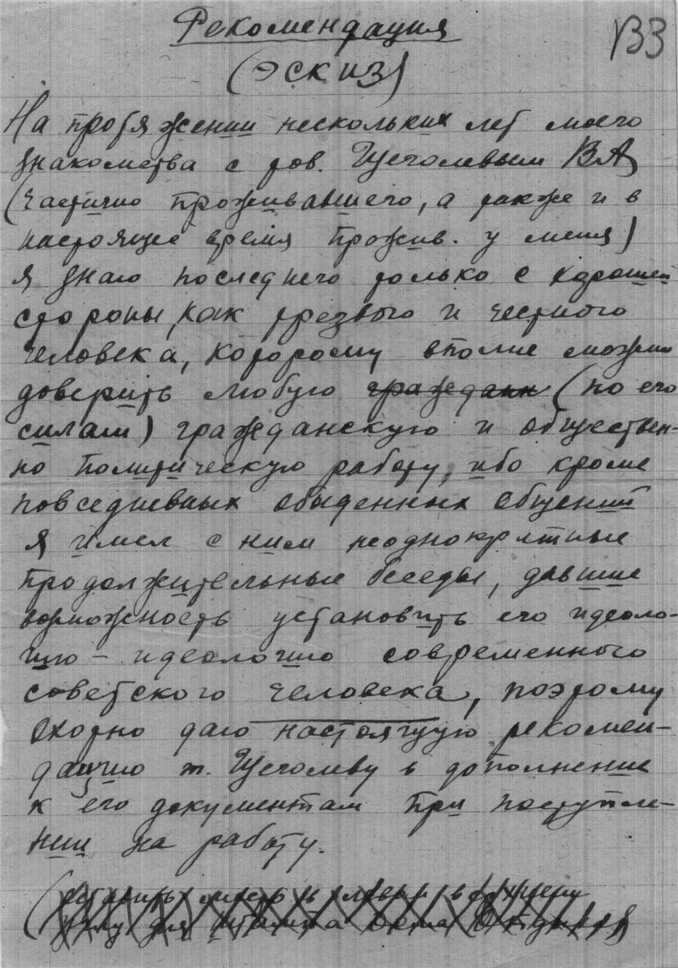 Рекомендация
133
(эскиз)
На протяжении нескольких лет моего
знакомства с тов. Щеголевым ВА
(частично проживавшего, а также и в
настоящее время прожив. у меня)
я знаю последнего только с хорошей
стороны, как трезвого и честного
человека, которому вполне можно
доверить любую граждан (по его
силам) гражданскую и обществен-
но политическую работу, ибо кроме
повседневных обыденных общений
я имел с ним неоднократные
продолжительные беседы, давшие
возможность установить его идеоло-
гию – идеологию современного
советского человека, поэтому
охотно даю настоящую рекомен-
дацию т. Щеголеву в дополнение
к его документам при поступле-
нии на работу.
(оставить место и
для штампа